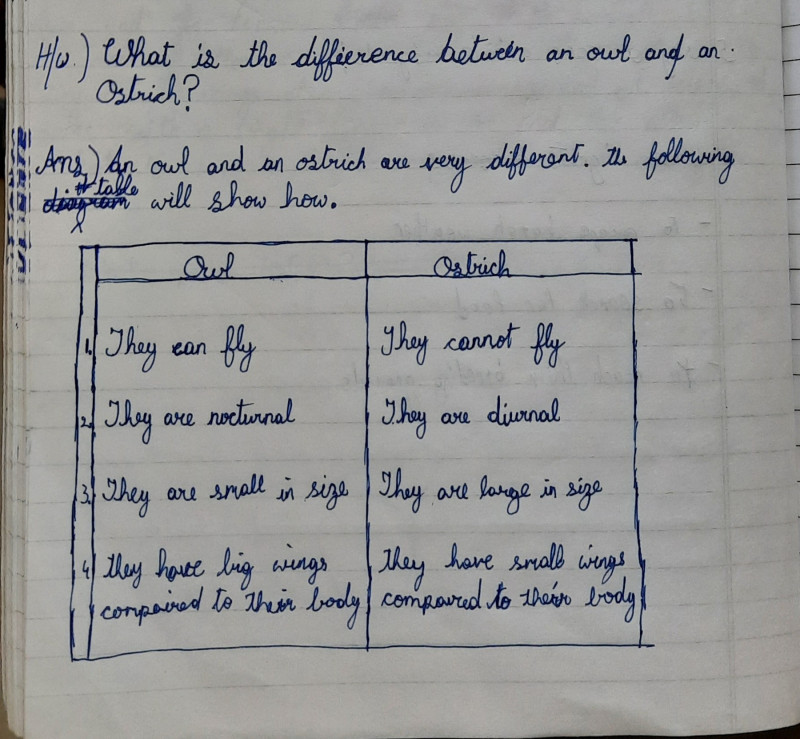 H/w.) What is the diffierence between an owl and an
Ostrich?
Ans) An owl and an ostrich are very different. the following
table
will show how.
Owl Ostrich
1. They can fly They cannot fly
2. They are nocturnal They are diurnal
3. They are small in size They are large in size
4. they have big wings they have small wings
compaired to their body compaired to their body